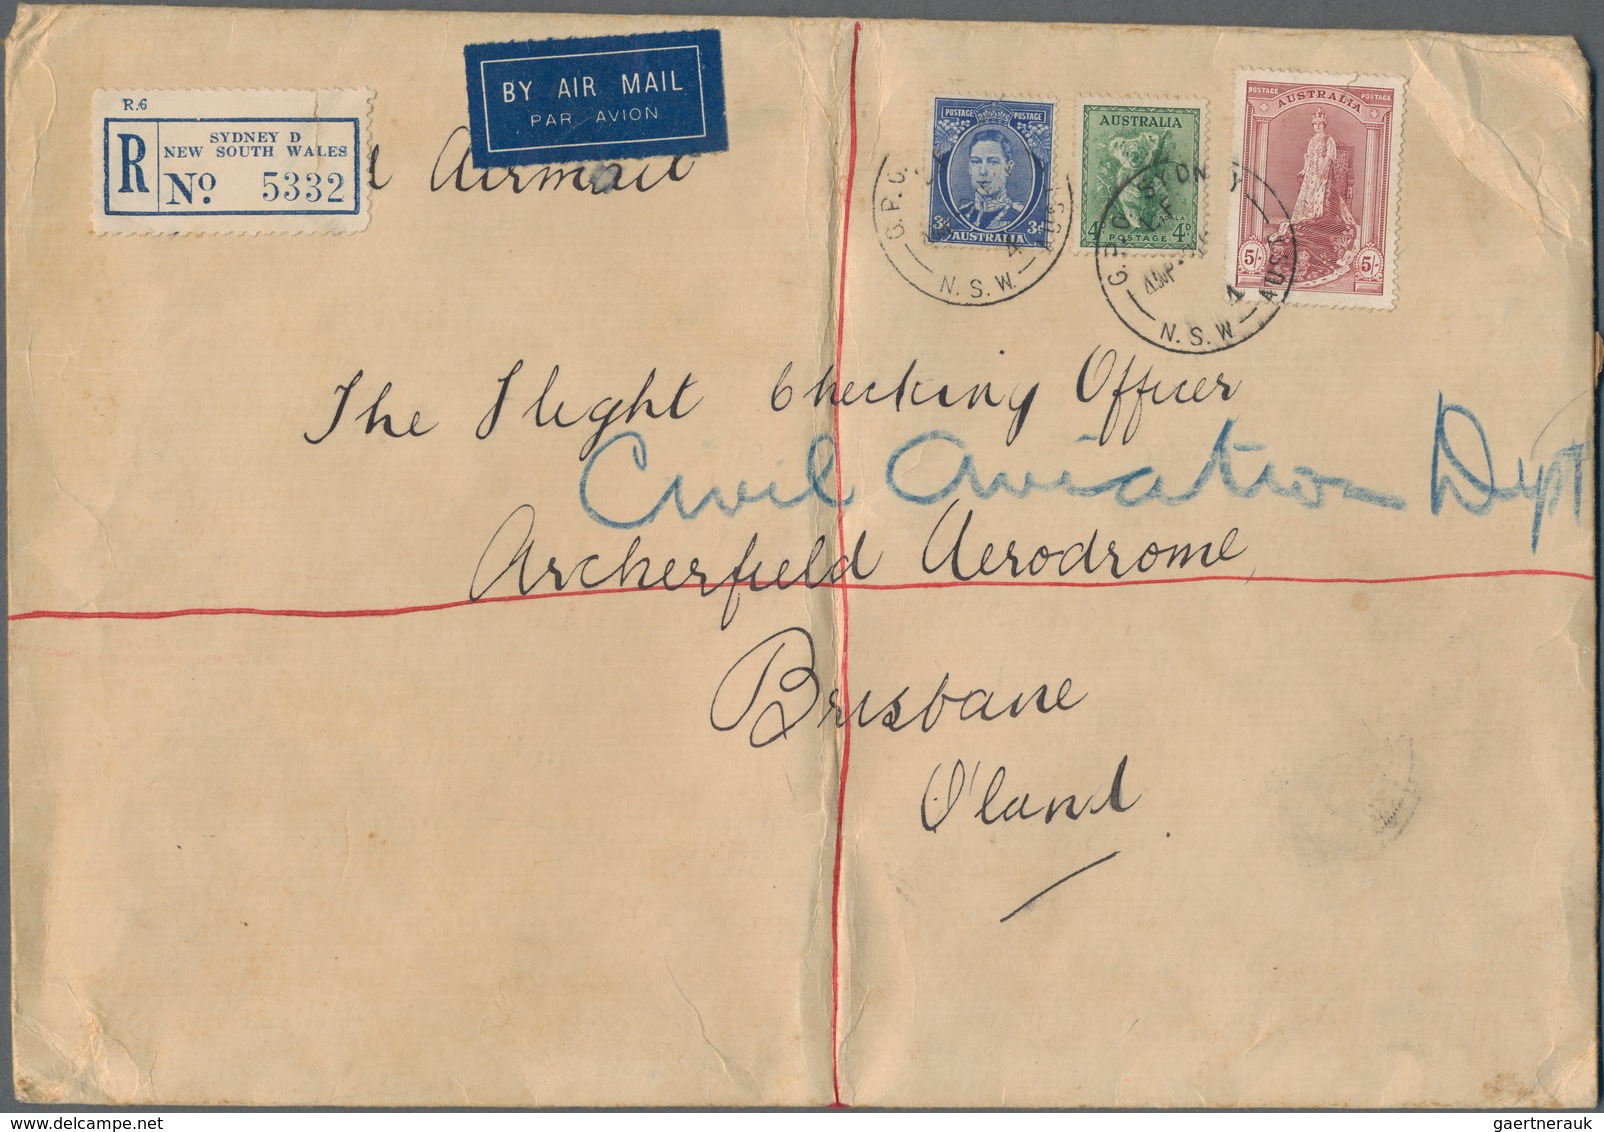 R.6
R
SYDNEY D
NEW SOUTH WALES
No. 5332
BY AIR MAIL
PAR AVION
Airmail
POSTAGE POSTAGE
3d 3d
AUSTRALIA
AUSTRALIA
KOALA
4D POSTAGE 4D
POSTAGE POSTAGE
AUSTRALIA
5/- 5/-
G.P.O.
AUST
N.S.W.
G.P.O. SYDNEY
AUST
N.S.W.
The Flight Checking Officer
Civil Aviation Dept
Archerfield Aerodrome,
Brisbane
Q'land
gaertnerauk